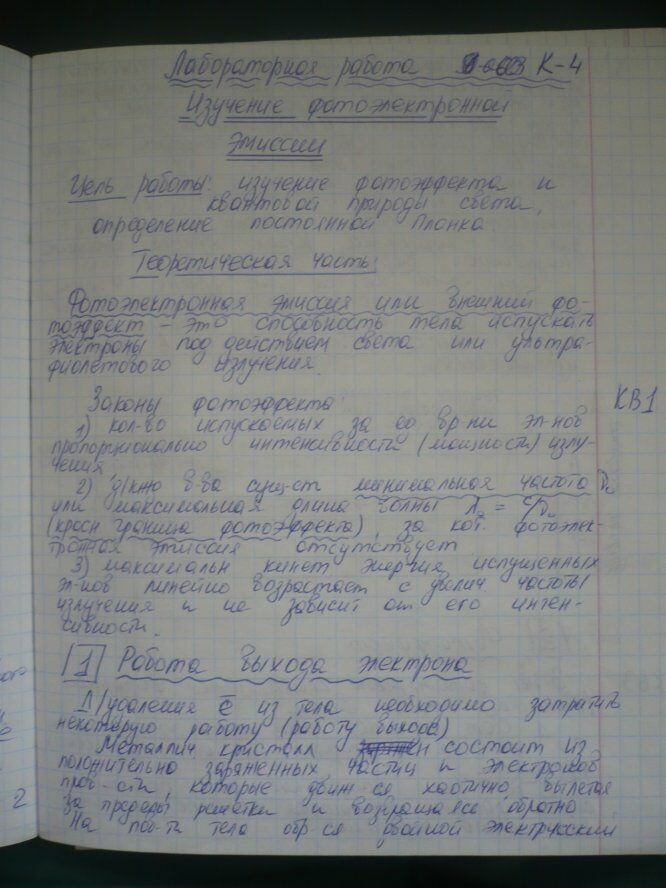 Лабораторная работа К-4
Изучение фотоэлектронной
Эмиссии
Цель работы: изучение фотоэффекта и
квантовой природы света,
определение постоянной Планка.
Теоретическая часть:
Фотоэлектронная эмиссия или внешний фо-
тоэффект – это способность тела испускать
электроны под действием света или ультра-
фиолетового излучения.
Законы фотоэффекта:
КВ1
1) кол-во испускаемых за ед вр-ни эл-нов
пропорционально интенсивности (мощности) излу-
чения
2) д/кжо в-ва сущ-ст минимальная частота
или максимальная длина волны
(красн граница фотоэффекта), за кот. фотоэлек-
тронная эмиссия отсутствует
3) максимальн кинет энергия испущенных
эл-нов линейно возрастает с увелич. частоты
излучения и не зависит от его интен-
сивности.
1 Работа выхода электрона
Д/удаления ē из тела необходимо затратить
некоторую работу (работу выхода)
Металлич. кристалл состоит из
положительно заряженных частиц и электронов
пров-сти, которые движ-ся хаотично вылетая
за пределы решетки и возвращаясь обратно
На пов-ти тела обр-ся двойной электрический
2